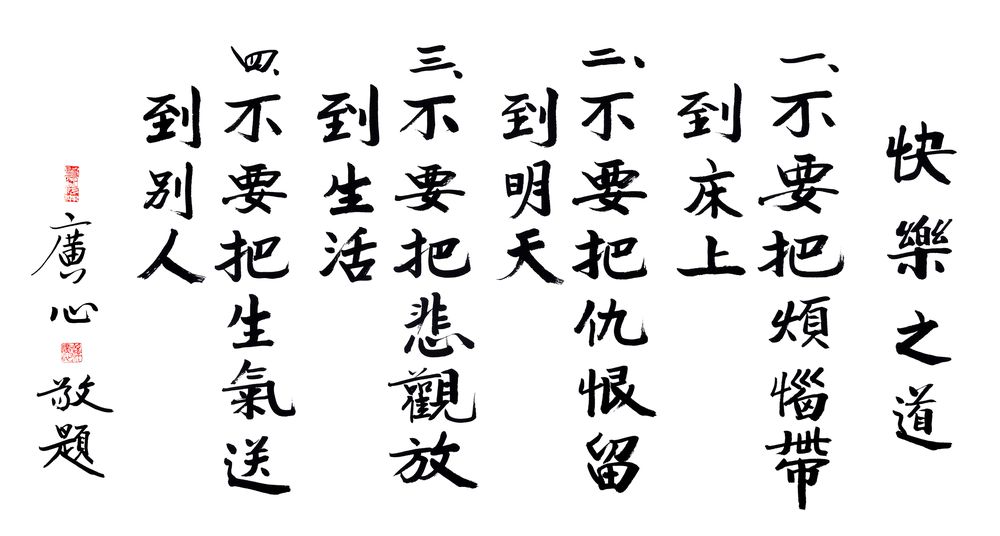 快樂之道
一、不要把煩惱帶
到床上
二、不要把仇恨留
到明天
三、不要把悲觀放
到生活
四、不要把生氣送
到別人
廣心敬題